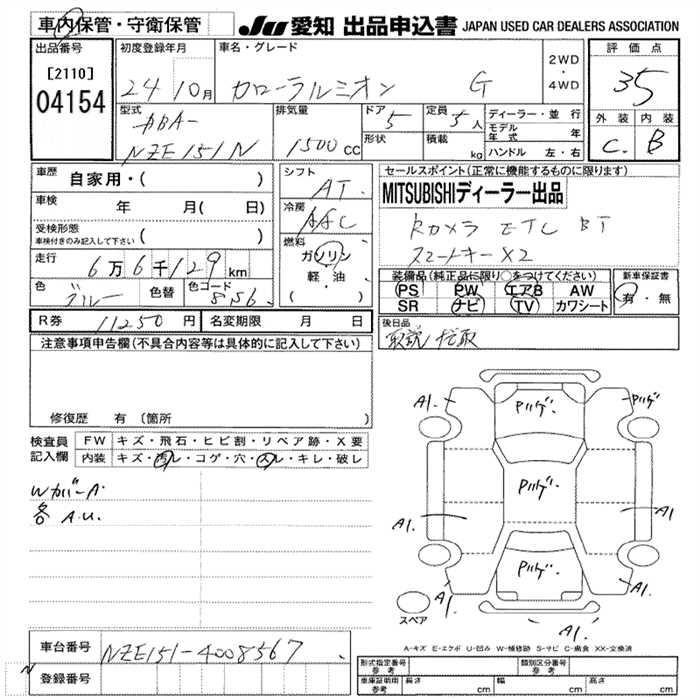 車内保管・守衛保管
JU 愛知 出品申込書 JAPAN USED CAR DEALERS ASSOCIATION
出品番号
[2110]
04154
初度登録年月
24 10月
車名・グレード
カローラルミオン G
2WD
・
4WD
評価点
35
外装 内装
C. B
型式
DBA-
NZE151N
排気量
1500 CC
ドア 5
形状
定員 5人
積載 kg
ディーラー・並行
モデル年式 年
ハンドル 左・右
車歴 自家用・( )
車検 年 月( 日)
受検形態
車検付きのみ記入して下さい ( )
走行 6万6千129 km
色 ブルー 色替 色コード 8S6
R券 11250 円 名変期限 月 日
シフト
AT
冷房
AAC
燃料
ガソリン
・
軽・油
( )
セールスポイント(正常に機能するものに限ります)
MITSUBISHIディーラー出品
Rカメラ ETC BT
スマートキー×2
装備品(純正品に限り○をつけてください)
PS PW エアB AW
SR ナビ TV カワシート
新車保証書
有・無
後日品
取説
注意事項申告欄(不具合内容等は具体的に記入して下さい)
修復歴 有〔箇所
検査員
記入欄
FW キズ・飛石・ヒビ割・リペア跡・X要
内装 キズ・汚レ・コゲ・穴・スレ・キレ・破レ
WカバーA
各 A.U.
A1. A1.
A1. A1.
A1. A1.
スペア
A-キズ E-エクボ U-凹み W-補修跡 S-サビ C-腐食 XX-交換済
車台番号 NZE151-4008567
登録番号
形式指定番号
参考
類別区分番号
参考
車庫証明用
参考
長さ cm 幅 cm 高さ cm